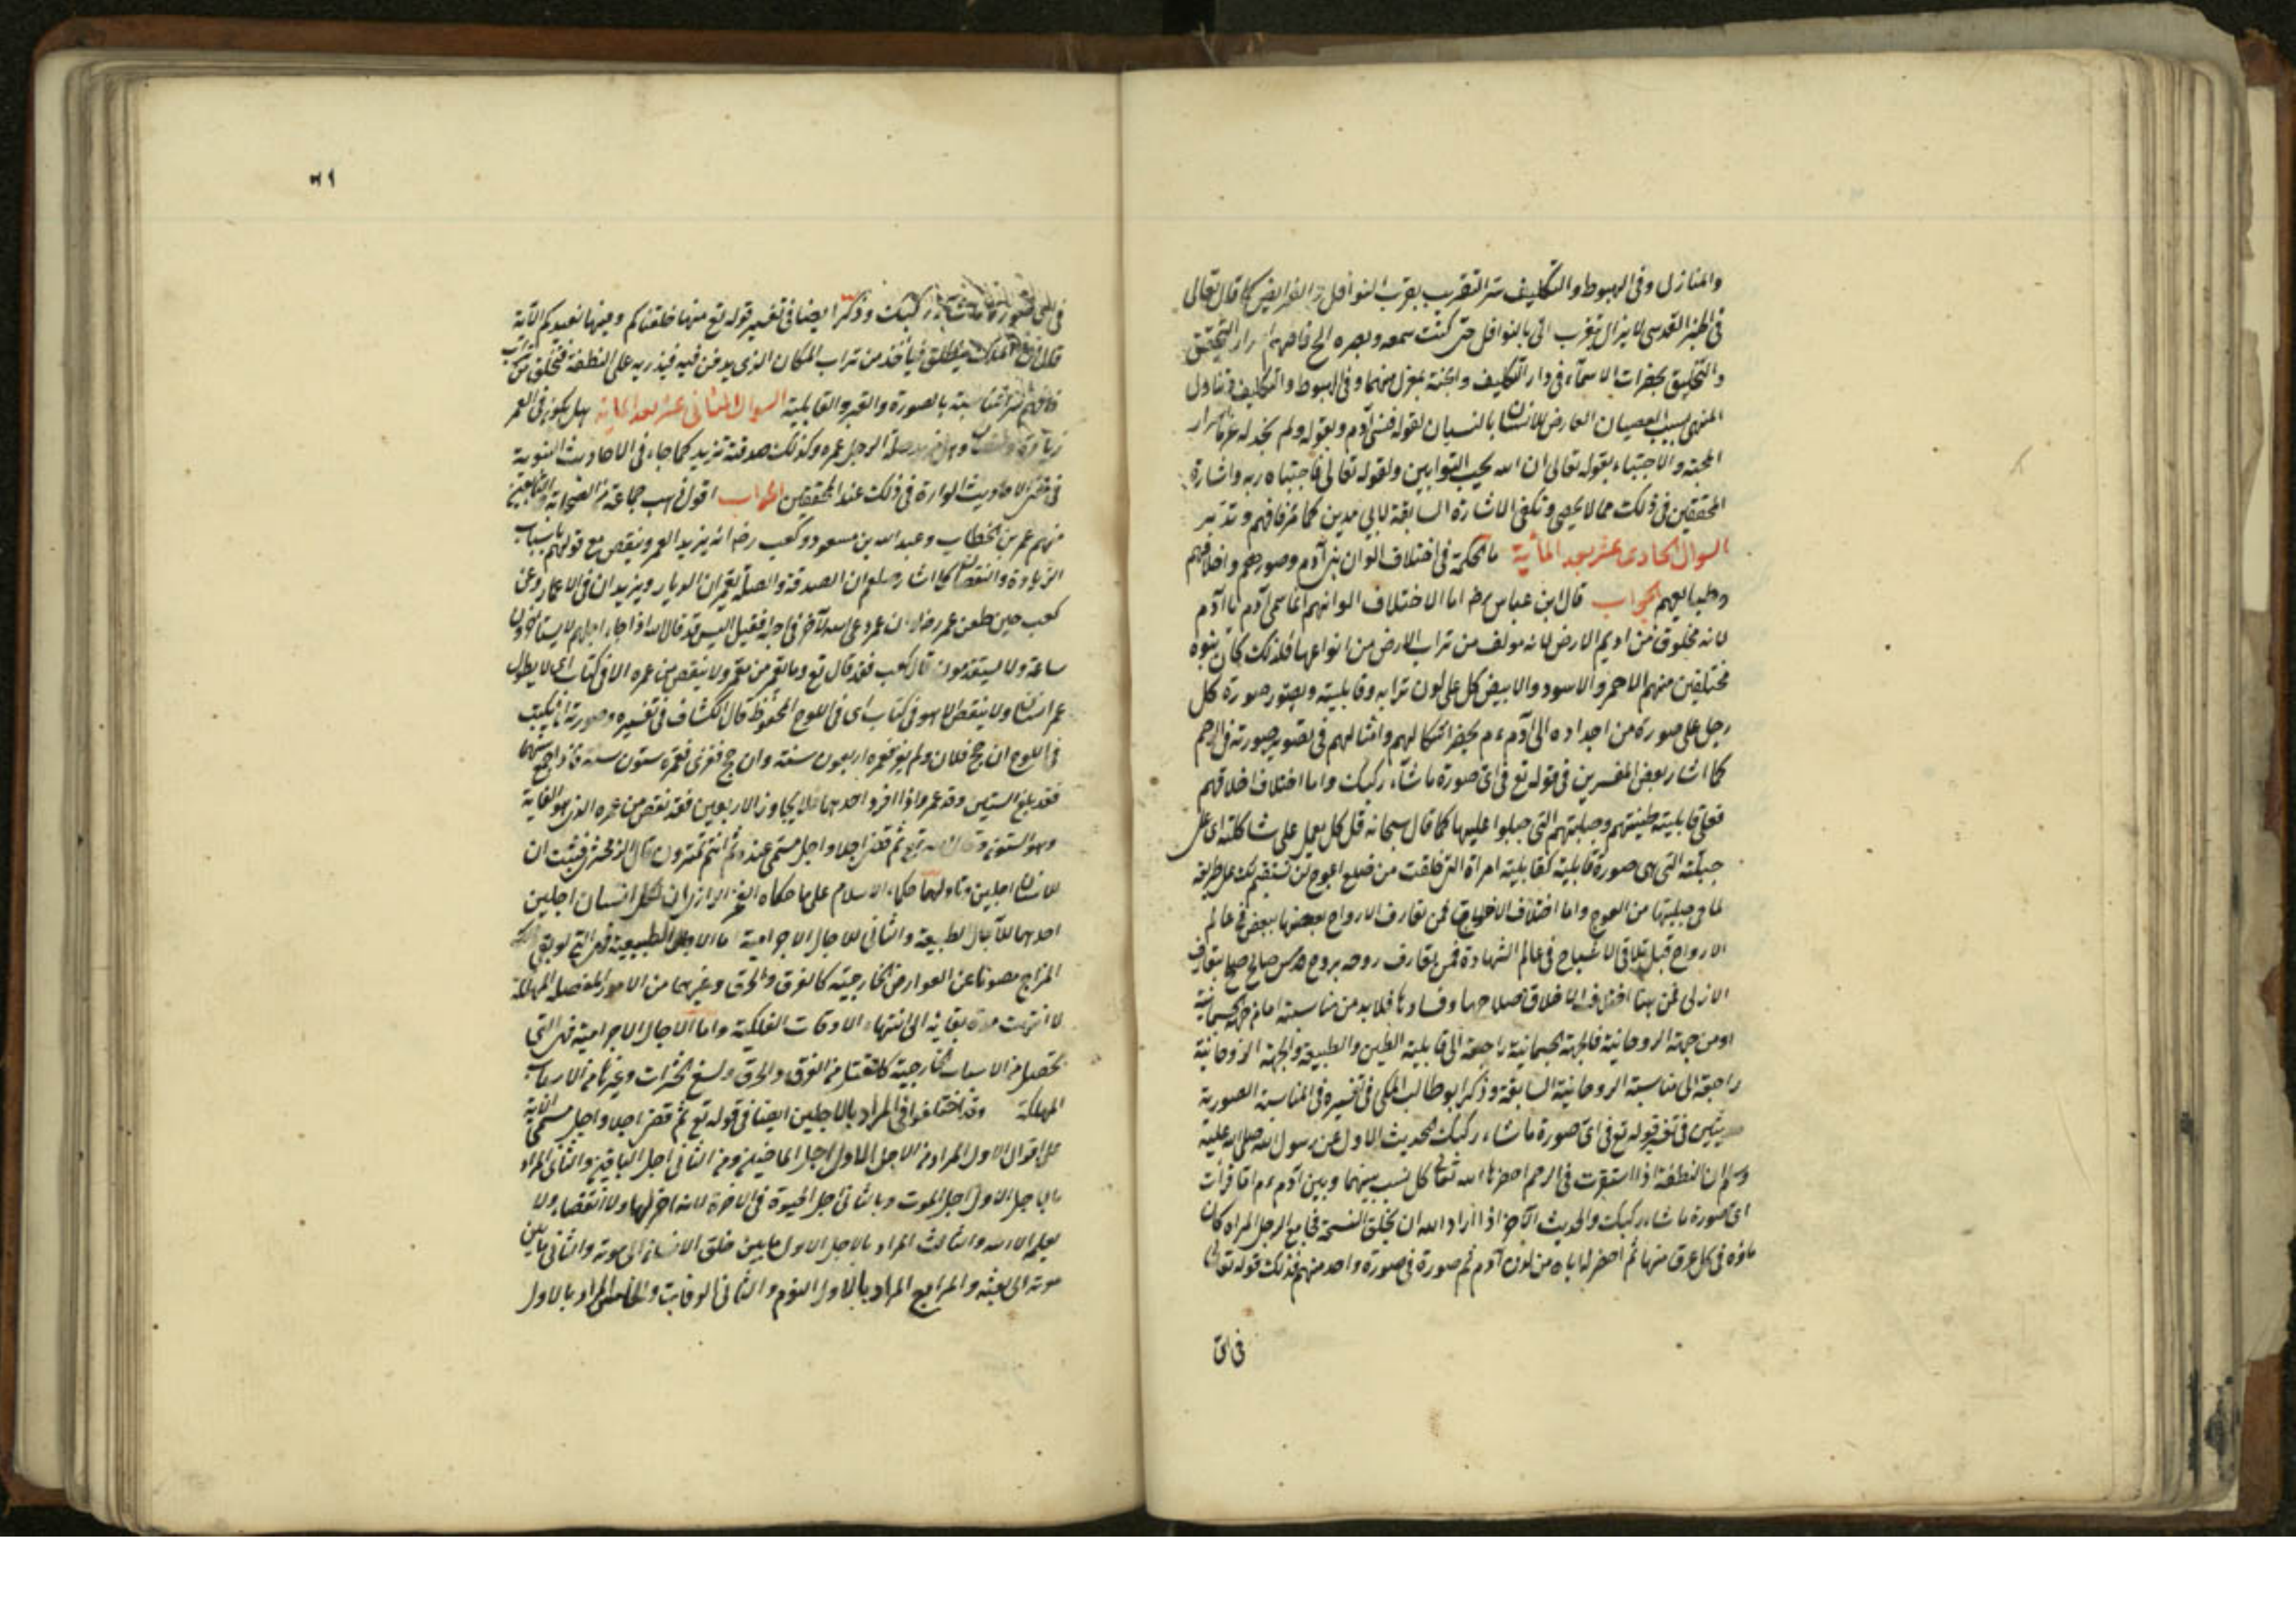 والمنازل وفى الهبوط والتكليف سر التقريب بقرب النوافل والفرايض كما قال تعالى
فى الخبر القدسى لا يزال يتقرب الى بالنوافل حتى كنت سمعه وبصره الخ فافهم اسرار التحقق
والتخليق بحضرات الاسماء فى دار التكليف والجنة بمعزل منهما وفى الهبوط والتكليف وتناول
المنهى بسبب العصيان العارض للانسان بالنسيان لقوله فنسى آدم وبقوله ولم نجد له عزما اسرار
المحبة والاجتباء بقوله تعالى ان الله يحب التوابين ولقوله تعالى فاجتباه ربه واشارة
المحققين فى ذلك مما لا يحصى وتكفى الاشارة السابقة لابى مدين كما عرفافهم وتدبر
السوال الحادى عشر بعد المأية ما الحكمة فى اختلاف الوان بنى آدم وصورهم واخلاقهم
وطبايعهم الجواب قال ابن عباس رضه اما الاختلاف الوانهم انما سمى آدم باآدم
لانه مخلوق من اديم الارض لانه مولف من تراب الارض من انواعها فلذلك كان بنوه
مختلفين منهم الاحمر والاسود والابيض كل على لون ترابه وقابليته ويصور صورة كل
رجل على صورة من اجداده الى آدم ءم بحضر اشكالهم وامثالهم فى تصوير صورته فى الرحم
كما اشار بعض المفسرين فى قوله تع فى اى صورة ما شآء ركبك واما اختلاف اخلاقهم
فعلى قابلية طينتهم وجبلتهم التى جبلوا عليها كما قال سبحانه قل كل يعمل على شاكلته اى على
جبلته التى هى صورة قابلية كقابلية امراة التى خلقت من ضلع اعوج لن تستقيم لك على طريقة
لما فى جبلتها من العوج واما اختلاف الاخلاق فمن تعارف الارواح بعضها ببعض فى عالم
الارواح قبل تلاقى الاشباح فى عالم الشهادة فمن تعارف روحه بروح صالح بتعارف
الازلى فمن هنا اختلاف الاخلاق صلاحها وفسادها فلا بد من مناسبة اما من جهة الجسمانية
اومن جهة الروحانية فالجهة الجسمانية راجعة الى قابلية الطين والطبيعة والجهة الروحانية
راجعة الى مناسبة الروحانية السابقة وذكر ابو طالب المكى فى تفسيره فى المناسبة الصورية
حديثين فى تفسير قوله تع فى اى صورة ما شاء ركبك الحديث الاول عن رسول الله صلى الله عليه
وسلم ان النطفة اذا استقرت فى الرحم احضرها الله تعالى كل نسب بينهما وبين آدم ءم اما قرأت
اى صورة ما شاء ركبك والحديث الآخر اذا اراد الله ان يخلق النسمة فجامع الرجل المراة كان
ماؤه فى كل عرق منها ثم احضر له اباه من لدن آدم ثم صورة فى صورة واحد منهم فذلك قوله تعالى
فى اى
فى اى صورة ما شاء ركبك وذكر ايضا فى تفسير قوله تع منها خلقناكم وفيها نعيدكم الآية
الملك ينطلق فيأخذ من تراب المكان الذى يدفن فيه فيذريه على النطفة فتخلق من تراب
فافهم سر مناسبة بالصورة والقبر والقابلية السوال الثانى عشر بعد الماية هل يكون فى العمر
زيادة ونقصان صلة الرجل عمره وكذلك صدقته تزيد كما جاء فى الاحاديث النبوية
الاحاديث الواردة فى ذلك عند المحققين الجواب اقول ذهب جماعة من الصحابة والتابعين
منهم عمر بن الخطاب وعبد الله بن مسعود وكعب رضه انه يزيد العمر وينقص مع قولهم باسباب
الزيادة والنقصان كما اشار صلعم ان الصدقة والصلة يعمران الديار ويزيدان فى الاعمار وعن
كعب حين طعن عمر رضه لو ان عمر دعى الله لآخر فى اجله فقيل اليس قد قال الله اذا جاء اجلهم لا يستأخرون
ساعة ولا يستقدمون قال كعب فقد قال تع وما يعمر من معمر ولا ينقص من عمره الا فى كتاب اى لا يطول
عمر انسان ولا ينقص الا هو فى كتاب اى فى اللوح المحفوظ قال الكشاف فى تفسيره وصورته ان يكتب
فى اللوح ان حج فلان ولم يغز فعمره اربعون سنة وان حج فغزى فعمره ستون سنة فاذا جمع بينهما
فقد بلغ الستين وقد عمر واذا افرد احدهما فلا يجاوز الاربعين فقد نقص من عمره الذى هو الغاية
وهو الستون وقال الله تع ثم قضى اجلا واجل مسمى عنده ثم انتم تمترون قال الزمخشرى فيثبت ان
للانسان اجلين وتاولهما حكماء الاسلام على ما حكاه الفخر الرازى ان لكل انسان اجلين
احدهما الآجال الطبيعية والثانى للآجال الاخرامية اما الآجال الطبيعية فهى التى لو بقى ذلك
المزاج مصونا عن العوارض الخارجية كالغرق والحرق وغيرهما من الامور المفصلة المهلكة
لانتهت مدة بقايه الى انتهاء الاوقات الفلكية واما الآجال الاخرامية فهى التى
تحصل من الاسباب الخارجية كالقتل من الغرق والحرق ولسع الحشرات وغيرها من الاسباب
المهلكة وقد اختلفوا فى المراد بالاجلين ايضا فى قوله تع ثم قضى اجلا واجل مسمى الآية
على اقوال الاول المراد من الاجل الاول اجل الماضين ومن الثانى اجل الباقين والثانى المراد
بالاجل الاول اجل الموت وبالثانى اجل الحيوة فى الاخرة لانه لا آخر لها ولا انقضاء ولا
يعلم الا الله والثالث المراد بالاجل الاول ما بين خلق الانسان الى موته والثانى ما بين
موته الى بعثه والرابع المراد بالاول النوم والثانى الوفات والخامس المراد بالاول